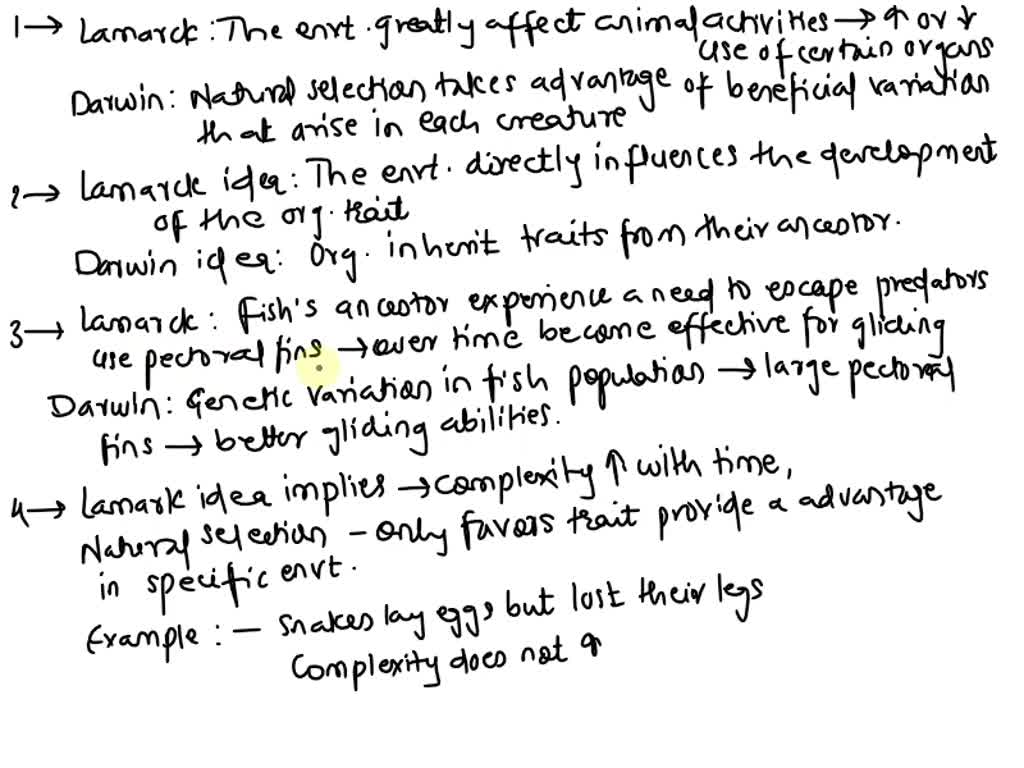 1→ Lamarck : The envt. greatly affect animal activities → ↑ or ↓
use of certain organs
Darwin: Natural selection takes advantage of beneficial variation
that arise in each creature
2→ Lamarck idea: The envt. directly influences the development
of the org. trait
Darwin idea: Org. inherit traits from their ancestor.
3→ Lamarck : Fish's ancestor experience a need to escape predators
use pectoral fins → over time become effective for gliding
Darwin: Genetic variation in fish population → large pectoral
fins → better gliding abilities.
4→ Lamark idea implies → complexity ↑ with time,
Natural selection - only favors trait provide a advantage
in specific envt.
Example : - snakes lay eggs but lost their legs
Complexity does not ↑